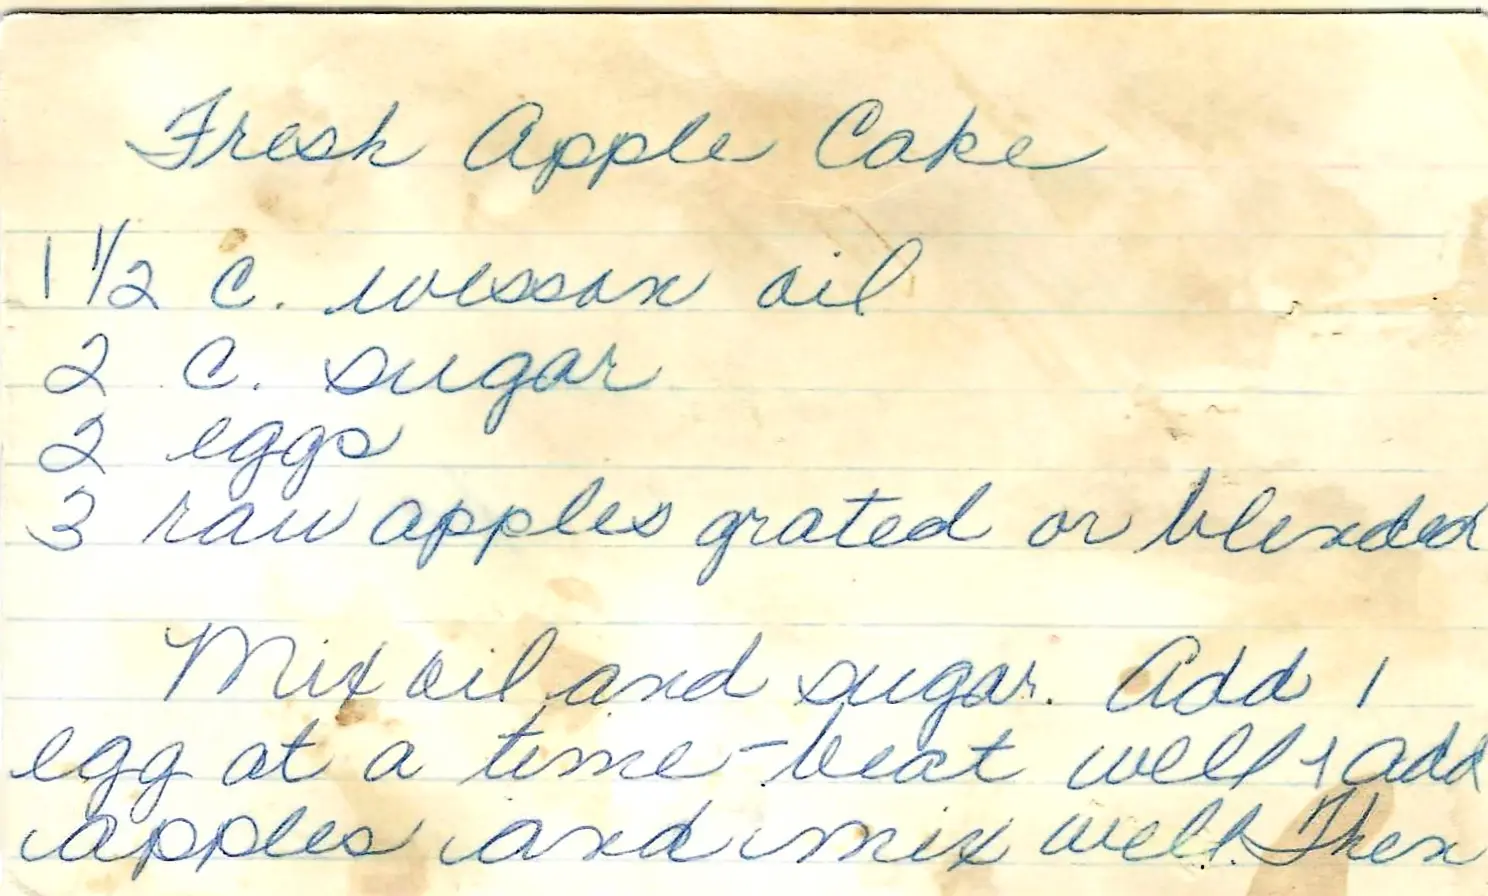 Fresh Apple Cake
1 1/2 c. wesson oil
2 c. sugar
2 eggs
3 raw apples grated or blended
Mix oil and sugar. Add 1
egg at a time - beat well + add
apples and mix well. Then